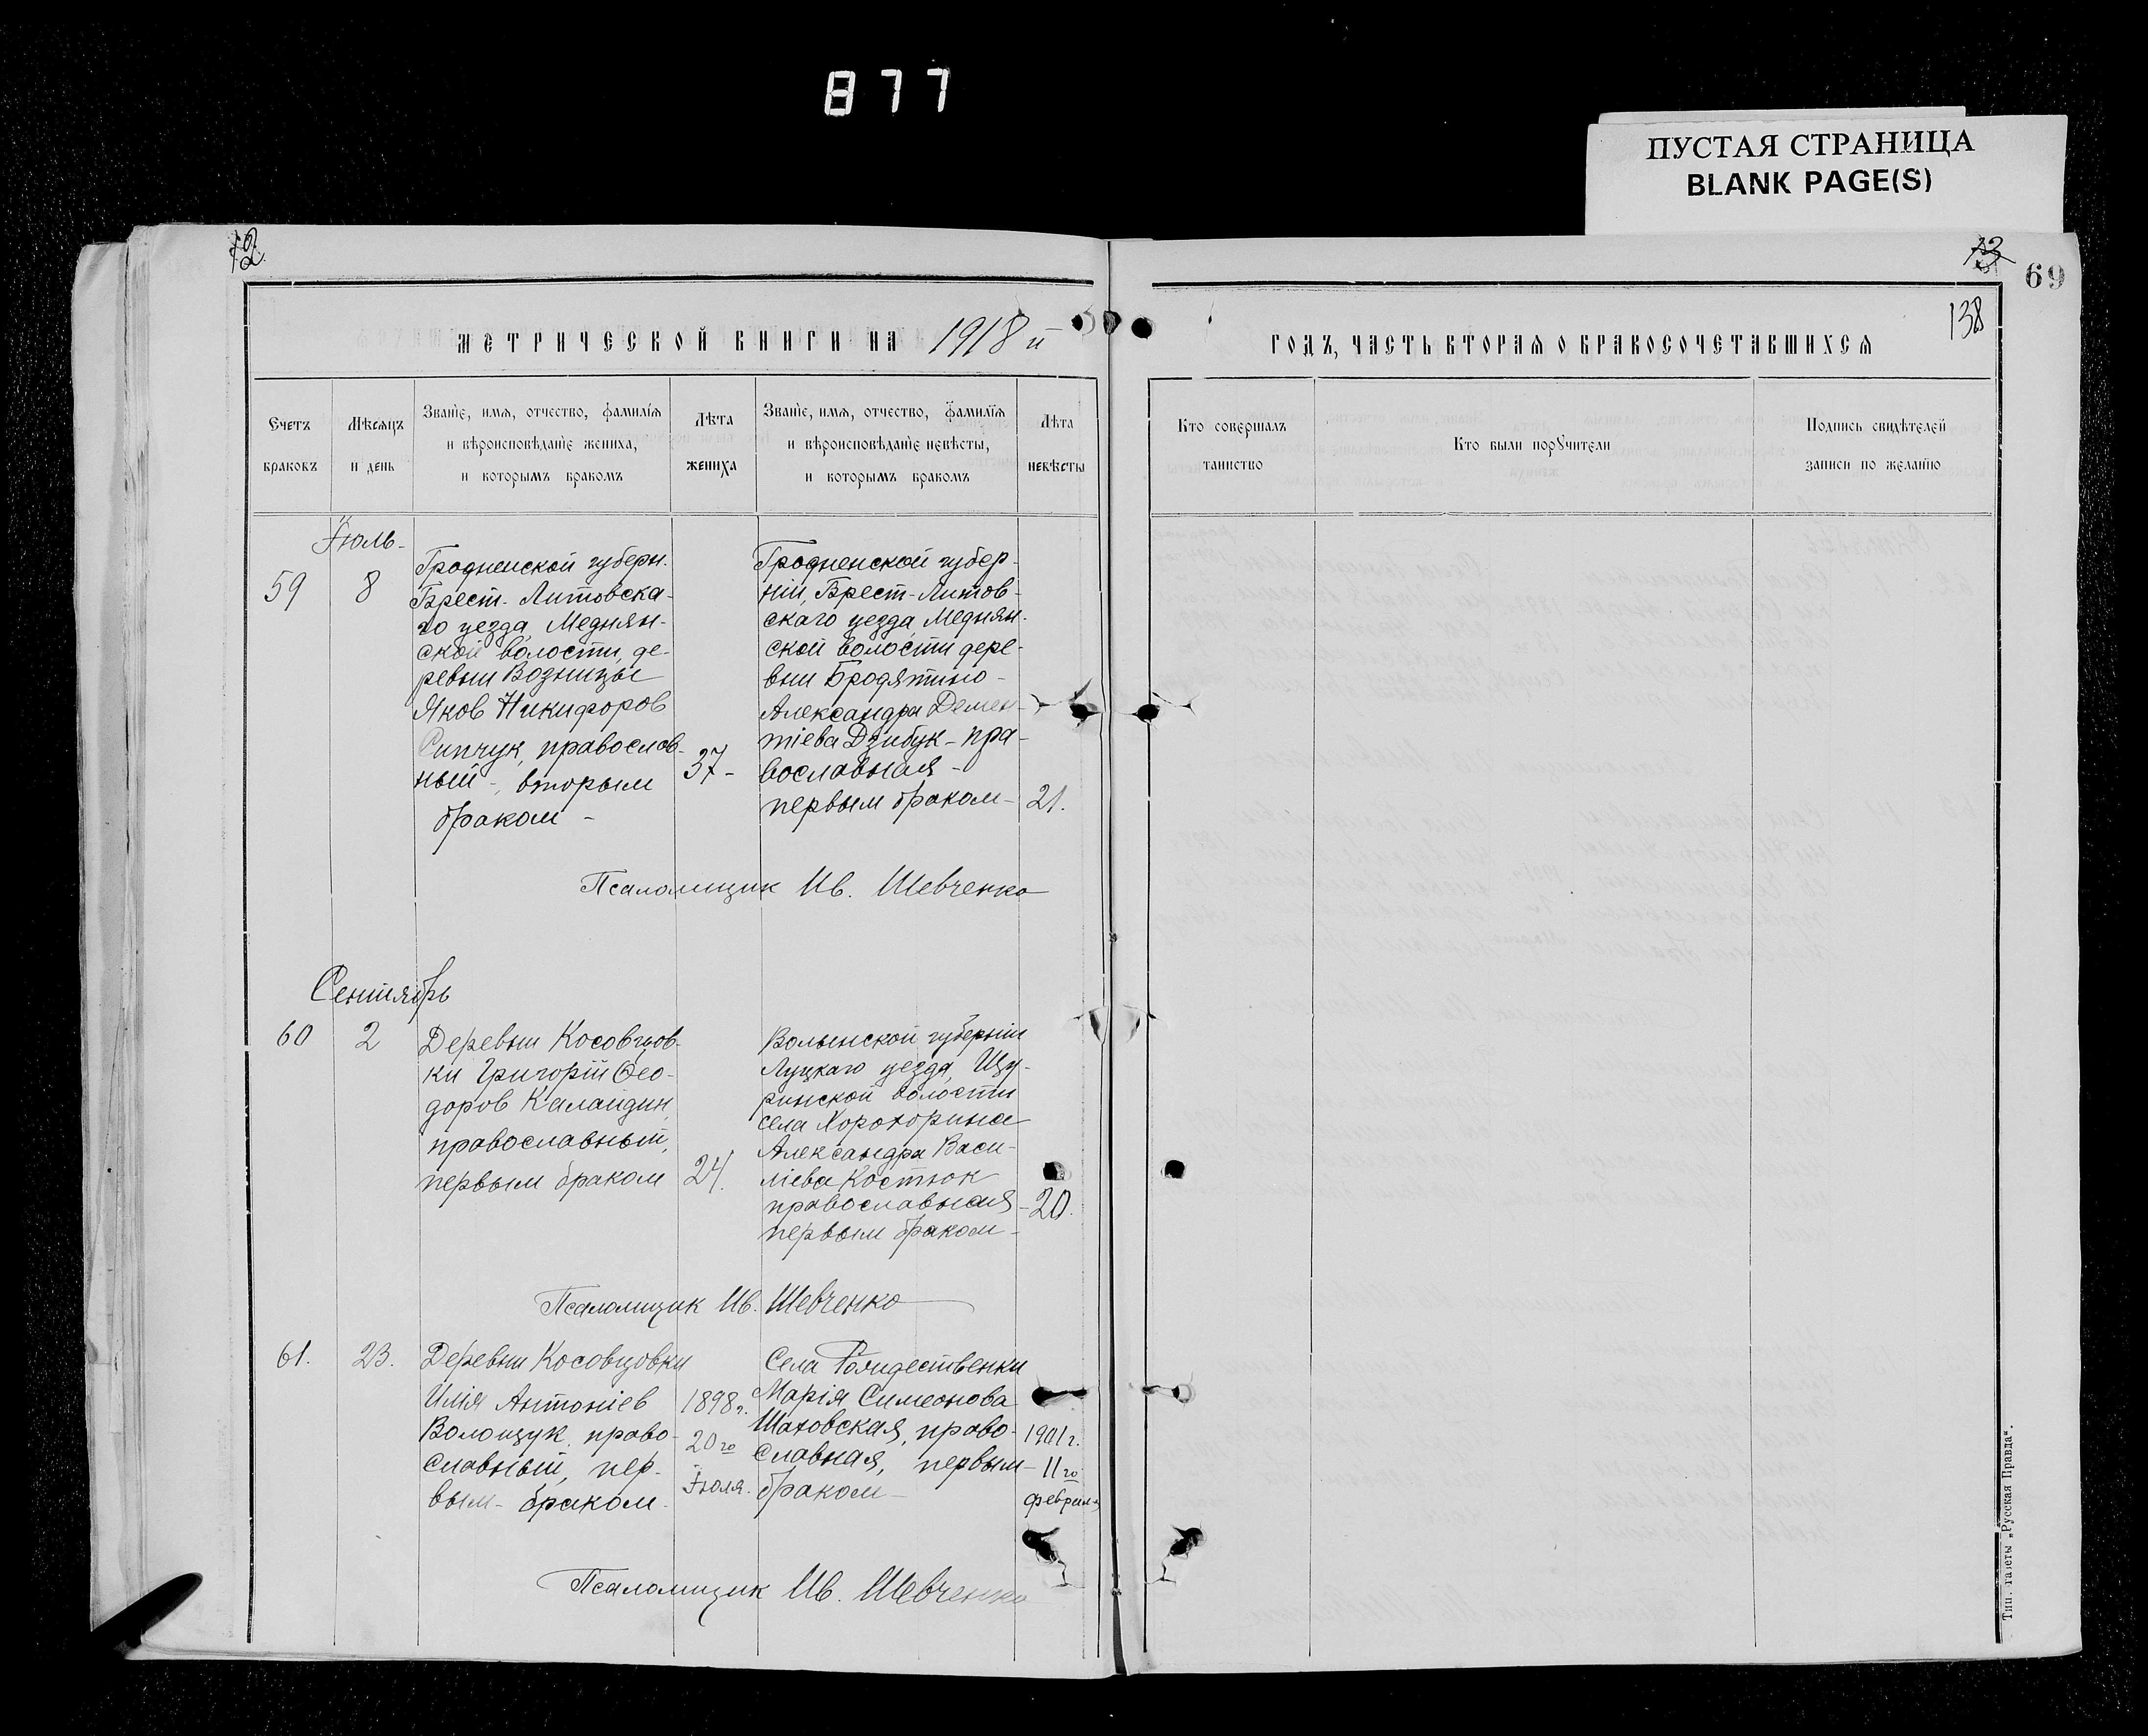 877
ПУСТАЯ СТРАНИЦА
BLANK PAGE(S)
12
13
69
138
МЕТРИЧЕСКОЙ КНИГИ НА 1918 й
ГОДЪ, ЧАСТЬ ВТОРАЯ О БРАКОСОЧЕТАВШИХСЯ
Счетъ
браковъ
Мѣсяцъ
и день
Званїе, имя, отчество, фамилїя
и вѣроисповѣданїе жениха,
и которымъ бракомъ
Лѣта
жениха
Званїе, имя, отчество, фамилїя
и вѣроисповѣданїе невѣсты,
и которымъ бракомъ
Лѣта
невѣсты
Кто совершалъ
таинство
Кто были порꙋчители
Подпись свидѣтелей
записи по желанїю
Іюль-
59
8
Гродненской губерн.
Брест-Литовска-
го уезда, Меднян-
ской волости, де-
ревни Возницы
Яков Никифоров
Сипчук, православ-
ный -, вторым
браком -
37-
Гродненской губер-
ніи, Брест-Литов-
скаго уезда, Меднян-
ской волости дере-
вни Бродятино -
Александра Демен-
тіева Дзибук - пра-
вославная -
первым браком -
21.
Псаломщик Ив. Шевченко
Сентябрь
60
2
Деревни Косовцов-
ки Григорій Ѳео-
доров Каландин,
православный,
первым браком
24.
Волынской губерніи
Луцкаго уезда, Щу-
ринской волости
села Хорохорина
Александра Васи-
ліева Костюк
православная -
первым браком -
20.
Псаломщик Ив. Шевченко
61.
23.
Деревни Косовцовки
Илія Антоніев
Волощук, право-
славный, пер-
вым - браком.
1898г.
20го
Іюля.
Села Рождественки
Марія Симеонова
Шаховская, право-
славная, первым -
браком -
1901г.
11го
феврал-я
Псаломщик Ив. Шевченко
Тип. газеты „Русская Правда“.